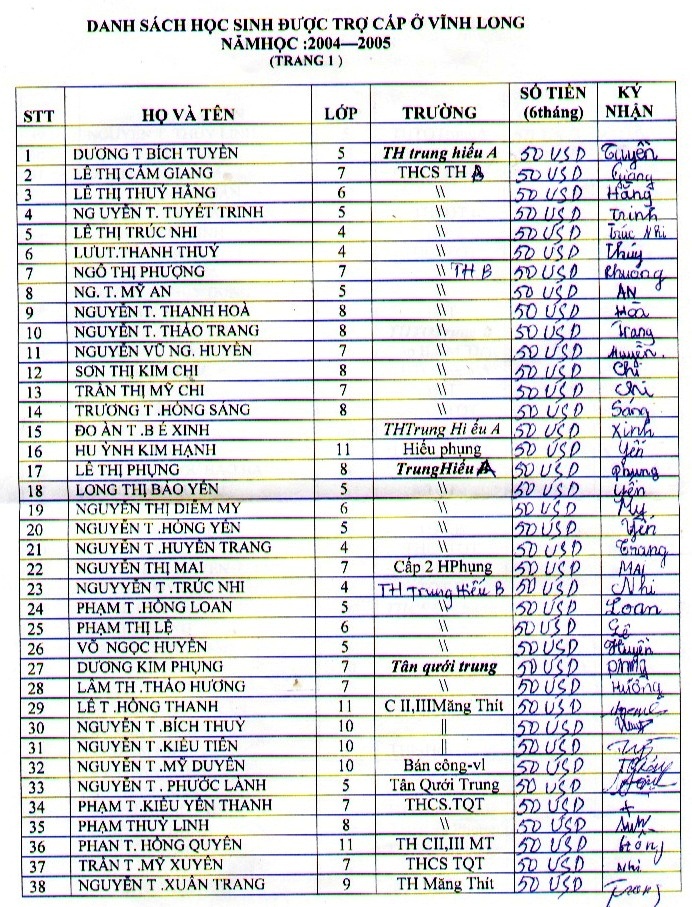 DANH SÁCH HỌC SINH ĐƯỢC TRỢ CẤP Ở VĨNH LONG
NĂMHỌC :2004—2005
(TRANG 1 )
STT HỌ VÀ TÊN LỚP TRƯỜNG SỐ TIỀN (6tháng) KÝ NHẬN
1 DƯƠNG T BÍCH TUYỀN 5 TH trung hiếu A 50 USD Tuyền
2 LÊ THỊ CẨM GIANG 7 THCS TH 50 USD Giang
3 LÊ THỊ THUÝ HẰNG 6 \\ 50 USD Hằng
4 NG UYỄN T. TUYẾT TRINH 5 \\ 50 USD Trinh
5 LÊ THỊ TRÚC NHI 4 \\ 50 USD Trúc Nhi
6 LƯUT.THANH THUÝ 4 \\ 50 USD Thúy
7 NGÔ THỊ PHƯỢNG 7 \\ TH B 50 USD Phượng
8 NG. T. MỸ AN 5 \\ 50 USD AN
9 NGUYỄN T. THANH HOÀ 8 \\ 50 USD Hòa
10 NGUYỄN T. THẢO TRANG 8 \\ 50 USD Trang
11 NGUYỄN VŨ NG. HUYỀN 7 \\ 50 USD Huyền.
12 SƠN THỊ KIM CHI 8 \\ 50 USD Chi
13 TRẦN THỊ MỸ CHI 7 \\ 50 USD Chi
14 TRƯƠNG T .HỒNG SÁNG 8 \\ 50 USD Sáng
15 ĐO ÀN T .B É XINH THTrung Hi ếu A 50 USD Xinh
16 HU ỲNH KIM HẠNH 11 Hiếu phụng 50 USD Yến
17 LÊ THỊ PHỤNG 8 TrungHiếu A 50 USD phụng
18 LONG THỊ BẢO YẾN 5 \\ 50 USD yến
19 NGUYỄN THỊ DIỄM MY 6 \\ 50 USD My
20 NGUYỄN T .HỒNG YẾN 5 \\ 50 USD Yến
21 NGUYỄN T .HUYỀN TRANG 4 \\ 50 USD Trang
22 NGUYỄN THỊ MAI 7 Cấp 2 HPhụng 50 USD MAI
23 NGUYYỄN T .TRÚC NHI 4 TH Trung Hiếu B 50 USD Nhi
24 PHẠM T .HỒNG LOAN 5 \\ 50 USD Loan
25 PHẠM THỊ LỆ 6 \\ 50 USD Lệ
26 VÕ NGỌC HUYỀN 5 \\ 50 USD Huyền
27 DƯƠNG KIM PHỤNG 7 Tân qưới trung 50 USD
28 LÂM TH .THẢO HƯƠNG 7 \\ 50 USD Hương
29 LÊ T .HỒNG THANH 11 C II,IIIMăng Thít 50 USD
30 NGUYỄN T .BÍCH THUỶ 10 || 50 USD
31 NGUYỄN T .KIỀU TIÊN 10 || 50 USD
32 NGUYỄN T .MỸ DUYÊN 10 Bán công-vl 50 USD
33 NGUYỄN T . PHƯỚC LÀNH 5 Tân Qưới Trung 50 USD
34 PHẠM T .KIỀU YẾN THANH 7 THCS.TQT 50 USD
35 PHẠM THUỲ LINH 8 \\ 50 USD
36 PHAN T. HỒNG QUYÊN 11 TH CII,III MT 50 USD
37 TRẦN T .MỸ XUYÊN 7 THCS TQT 50 USD
38 NGUYỄN T .XUÂN TRANG 9 TH Măng Thít 50 USD Trang